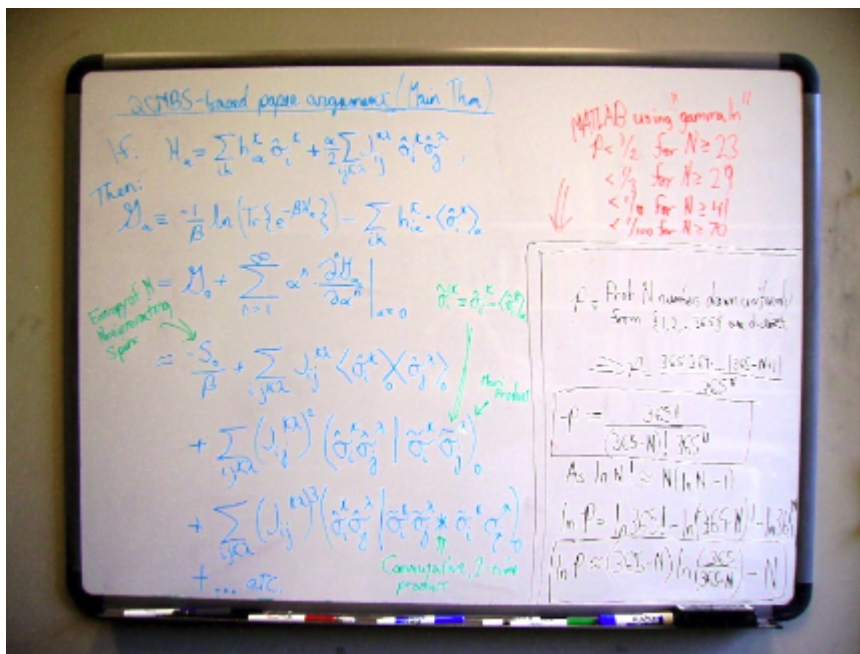 QSMBS-based paper argument (Main Thm)
If: H_α = Σ_{ik} h_{iα}^k σ̂_i^k + α/2 Σ_{ijkλ} J_{ij}^{kλ} σ̂_i^k σ̂_j^λ ,
Then:
𝒢_α ≡ -1/β ln(Tr{e^{-βH_α}}) - Σ_{ik} h_{iα}^k · ⟨σ̂_i^k⟩_α
= 𝒢_0 + Σ_{n≥1}^∞ α^n ∂^n𝒢_α/∂α^n |_{α=0}
σ̃_i^k = σ̂_i^k - ⟨σ̂_i^k⟩_α
Entropy of N
Noninteracting
Spins
= -S_0/β + Σ_{ijkλ} J_{ij}^{kλ} ⟨σ̂_i^k⟩_0 ⟨σ̂_j^λ⟩_0
Mori
Product
+ Σ_{ijkλ} (J_{ij}^{kλ})² (σ̃_i^k σ̃_j^λ | σ̃_i^k σ̃_j^λ)_0
+ Σ_{ijkλ} (J_{ij}^{kλ})³ (σ̃_i^k σ̃_j^λ | σ̃_i^k σ̃_j^λ * σ̃_i^k σ̃_j^λ)_0
Commutative, 2-time
product
+ ... etc.
MATLAB using "gammaln"
P < 1/2 for N ≥ 23
< 1/3 for N ≥ 29
< 1/10 for N ≥ 41
< 1/100 for N ≥ 70
P = Prob N numbers drawn uniformly
from {1,2,...365} are distinct
⇒ P = 365·364·...(365-N+1)/365^N
P = 365!/((365-N)! 365^N)
As ln N! ≈ N(ln N - 1)
ln P = ln 365! - ln(365-N)! - ln 365^N
ln P ≈ (365-N) ln(365/(365-N)) - N